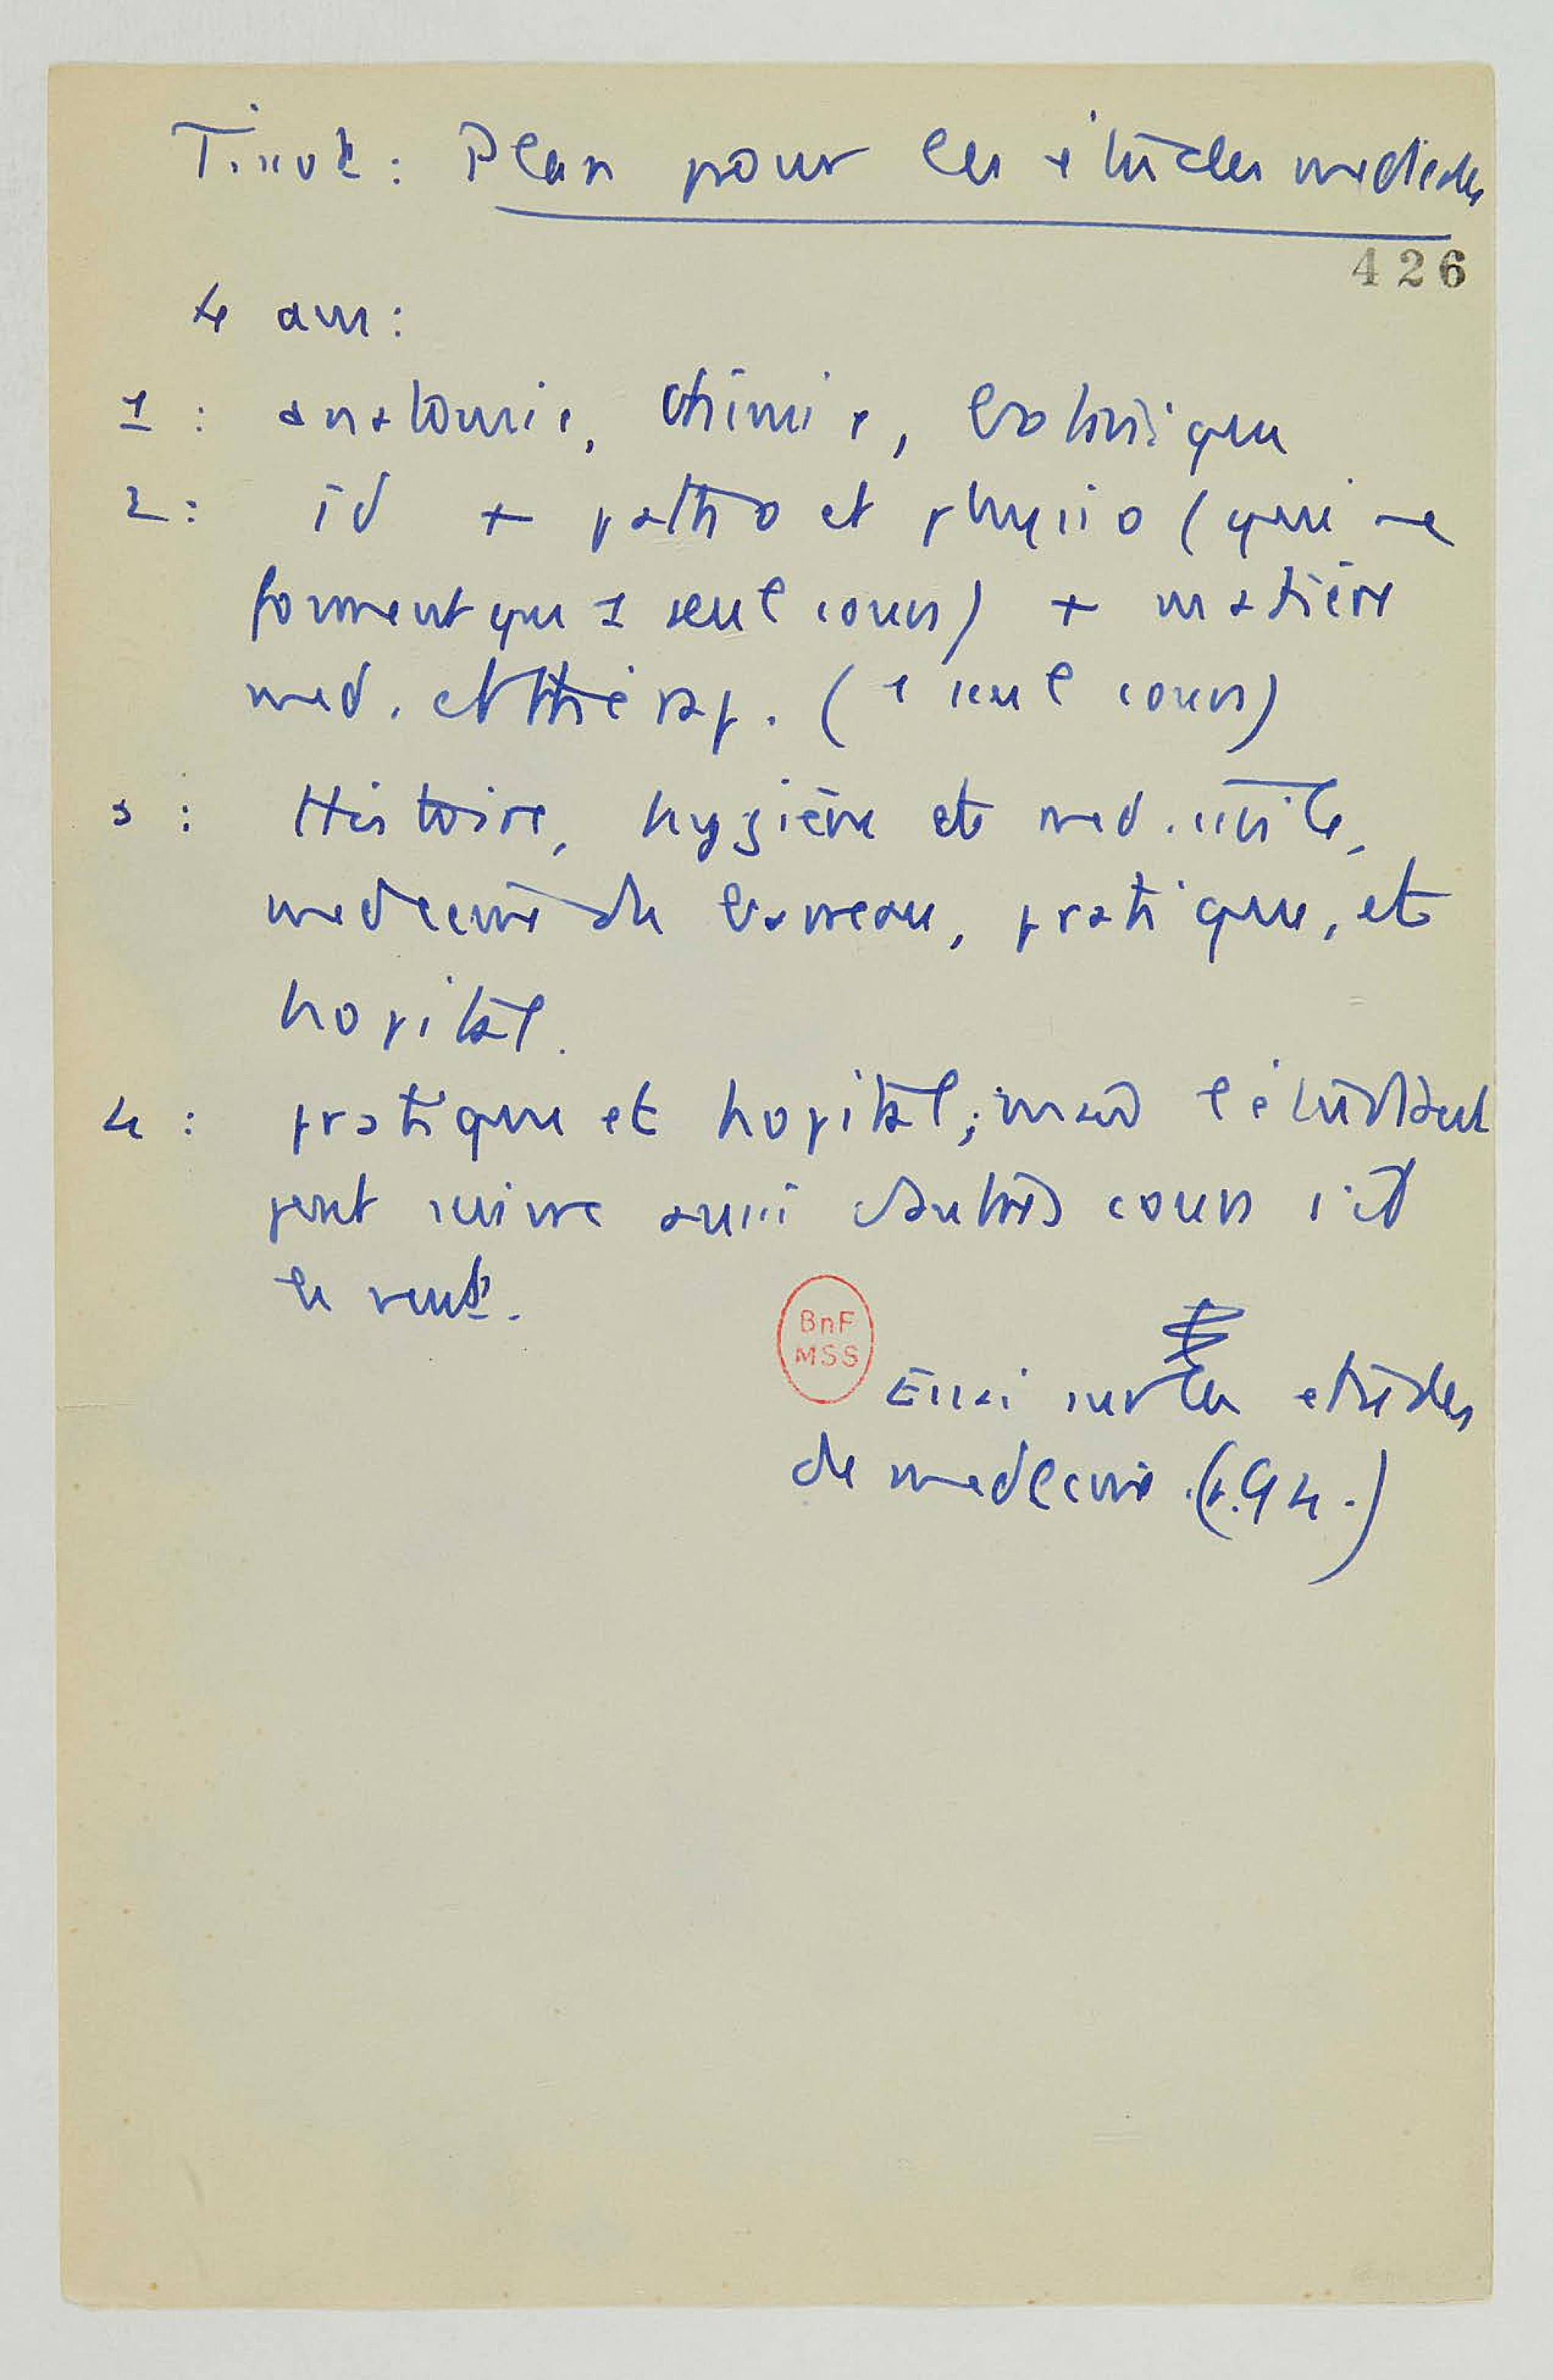 Tissot : Plan pour les études medicales
426
4 ans :
1 : anatomie, chimie, botanique
2 : id + patho et physio (qui ne
forment que 1 seul cours) + matière
med. et thérap. (1 seul cours)
3 : Histoire, hygiène et med. utile,
medecine du barreau, pratique, et
hopital.
4 : pratique et hopital ; mais l'étudiant
peut suivre aussi d'autres cours s'il
le veut.
BnF
MSS
Essai sur les etudes
de medecine. (p. 94.)